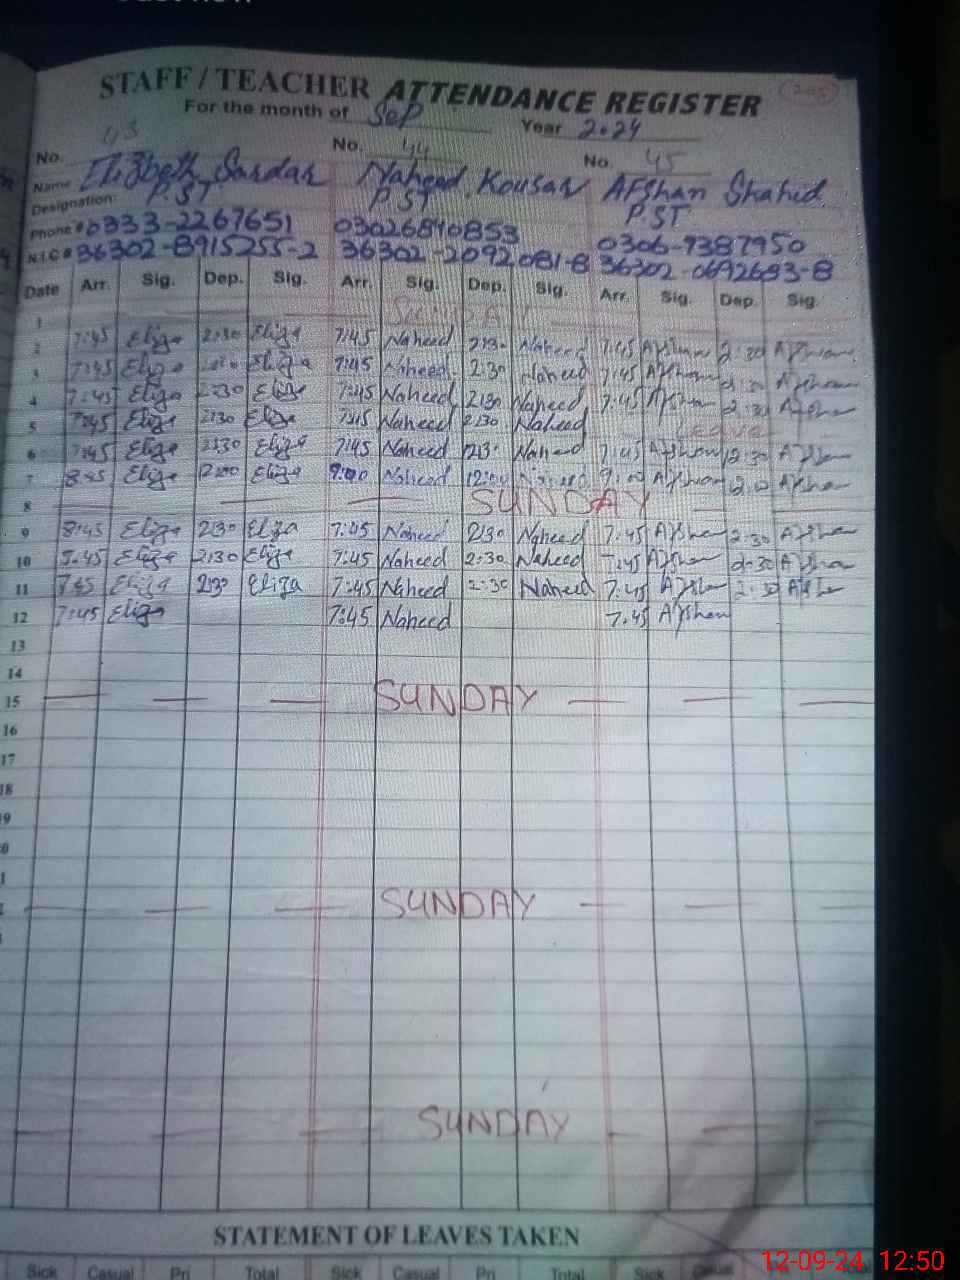 STAFF / TEACHER ATTENDANCE REGISTER
For the month of Sep Year 2024
No. 43 No. 44 No. 45
Name Elizbeth Sardar Naheed Kousar Afshan Shahid
Designation: P.ST P.ST P.ST
Phone # 0333-2267651 03026840853 0306-7387950
N.I.C # 36302-8915255-2 36302-2092081-8 36302-0692683-8
Date Arr. Sig. Dep. Sig. Arr. Sig. Dep. Sig. Arr. Sig. Dep. Sig.
1 SUNDAY
2 7:45 Eliza 2:30 Eliza 7:45 Naheed 2:30 Naheed 7:45 Afshan 2:30 Afshan
3 7:45 Eliza Eliza 7:45 Naheed 2:30 Naheed 7:45 Afshan 2:30 Afshan
4 7:45 Eliza 2:30 Eliza 7:45 Naheed 2:30 Naheed 7:45 Afshan 2:30 Afshan
5 7:45 Eliza 2:30 Eliza 7:45 Naheed 2:30 Naheed Leave
6 7:45 Eliza 2:30 Eliza 7:45 Naheed 2:30 Naheed 7:45 Afshan 2:30 Afshan
7 8:45 Eliza 12:00 Eliza 9:00 Naheed 12:00 Naheed 9:00 Afshan Afshan
8 SUNDAY
9 8:45 Eliza 2:30 Eliza 7:45 Naheed 2:30 Naheed 7:45 Afshan 2:30 Afshan
10 7:45 Eliza 2:30 Eliza 7:45 Naheed 2:30 Naheed 7:45 Afshan 2:30 Afshan
11 7:45 Eliza 2:30 Eliza 7:45 Naheed 2:30 Naheed 7:45 Afshan 2:30 Afshan
12 7:45 Eliza 7:45 Naheed 7:45 Afshan
13
14
15 SUNDAY
16
17
18
SUNDAY
SUNDAY
STATEMENT OF LEAVES TAKEN
Sick Casual Pri Total Sick Casual Pri Total Sick Casual
12-09-24 12:50